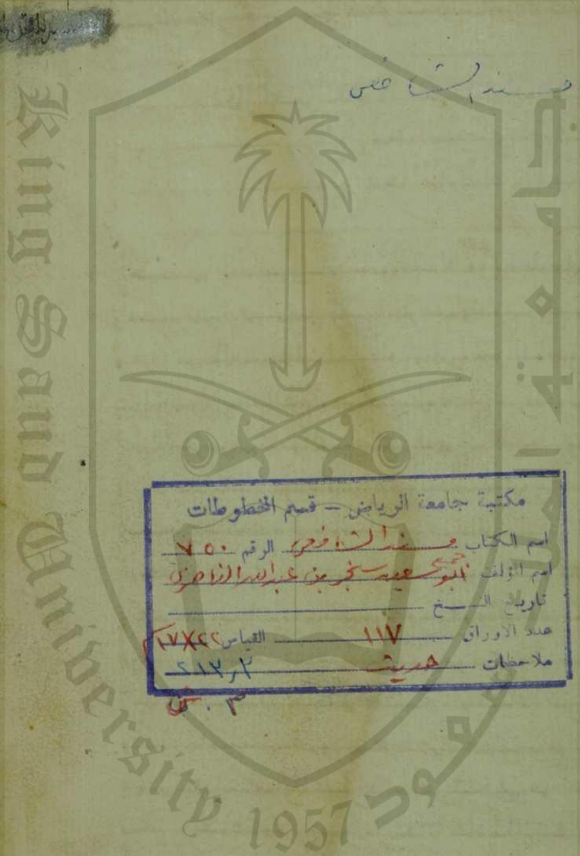 مسند الشافعي
King Saud University
1957
جامعة الملك سعود
مكتبة جامعة الرياض – قسم المخطوطات
اسم الكتاب مسند الشافعي الرقم ٧٥٠
اسم المؤلف سعيد سنجر بن عبدالله الناصري
تاريخ النسخ
عدد الأوراق ١١٧ القياس ٢٢×١٧
ملاحظات حديث ٢١٣٫٢